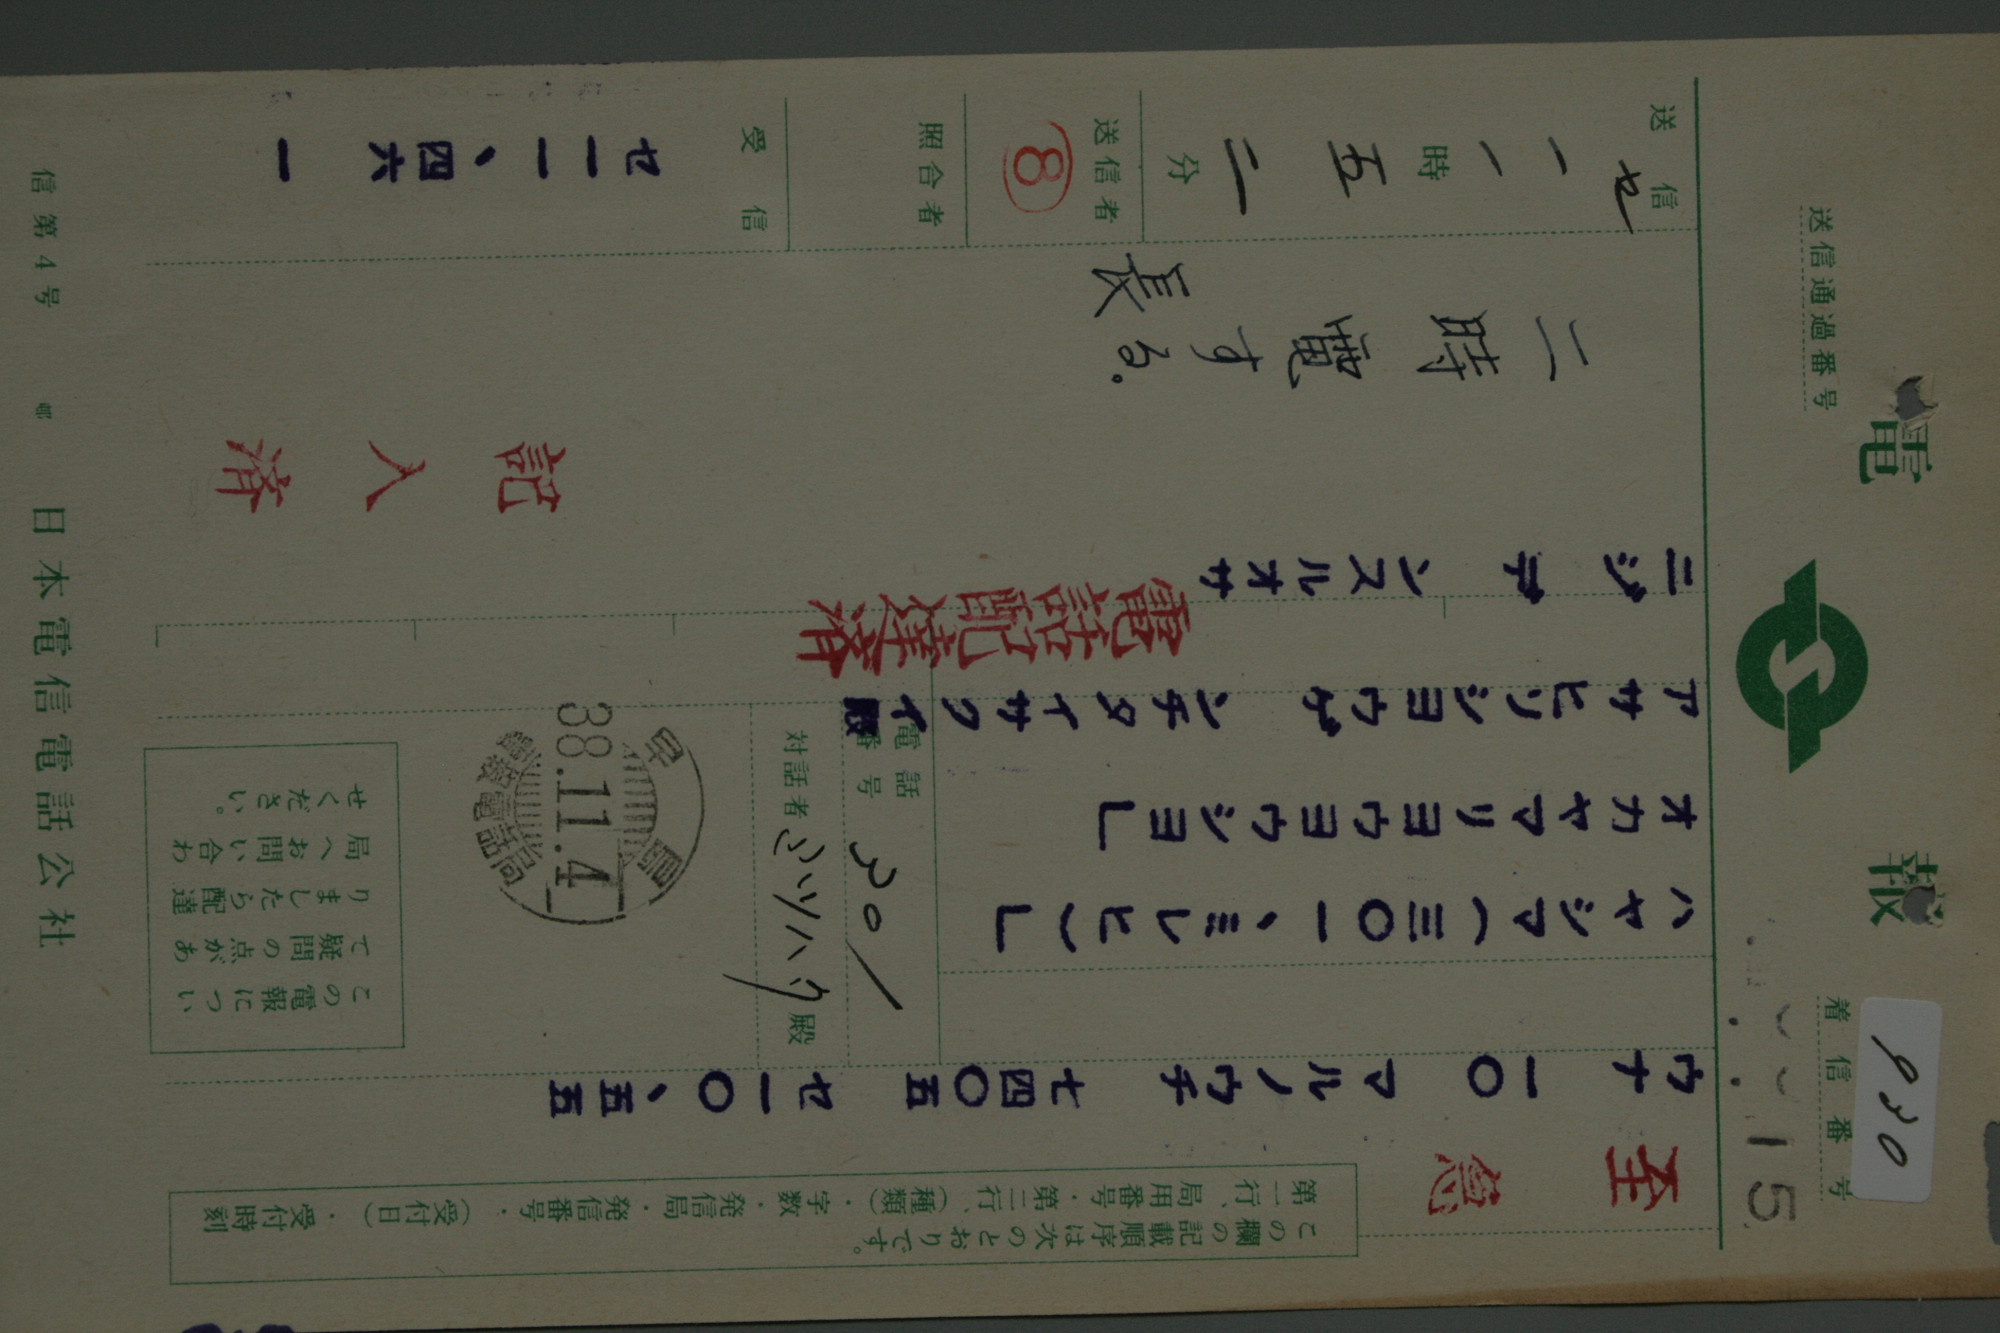 電報
送信通過番号
着信番号
15
930
この欄の記載順序は次のとおりです。
第一行、局用番号・第二行、(種類)・字数・発信局・発信番号・(受付日)・受付時刻
至急
ウナ 一〇 マルノウチ 七四〇五 セ一〇、五五
ハヤシマ(三〇一、ミレヒ)」
オカヤマリヨウヨウシヨ」
アサヒリシヨウゲ ンチタイサクイ殿
ニジデ ンスルオサ
電話配達済
二時電する。
長
記入済
送信
セ
一一時五二分
送信者
8
照合者
受信
セ一一、四六
一
電話番号
301
対話者
ミツハタ殿
早島
38.11.4
電報電話局
この電報につい
て疑問の点があ
りましたら配達
局へお問い合わ
せください。
信第4号
日本電信電話公社